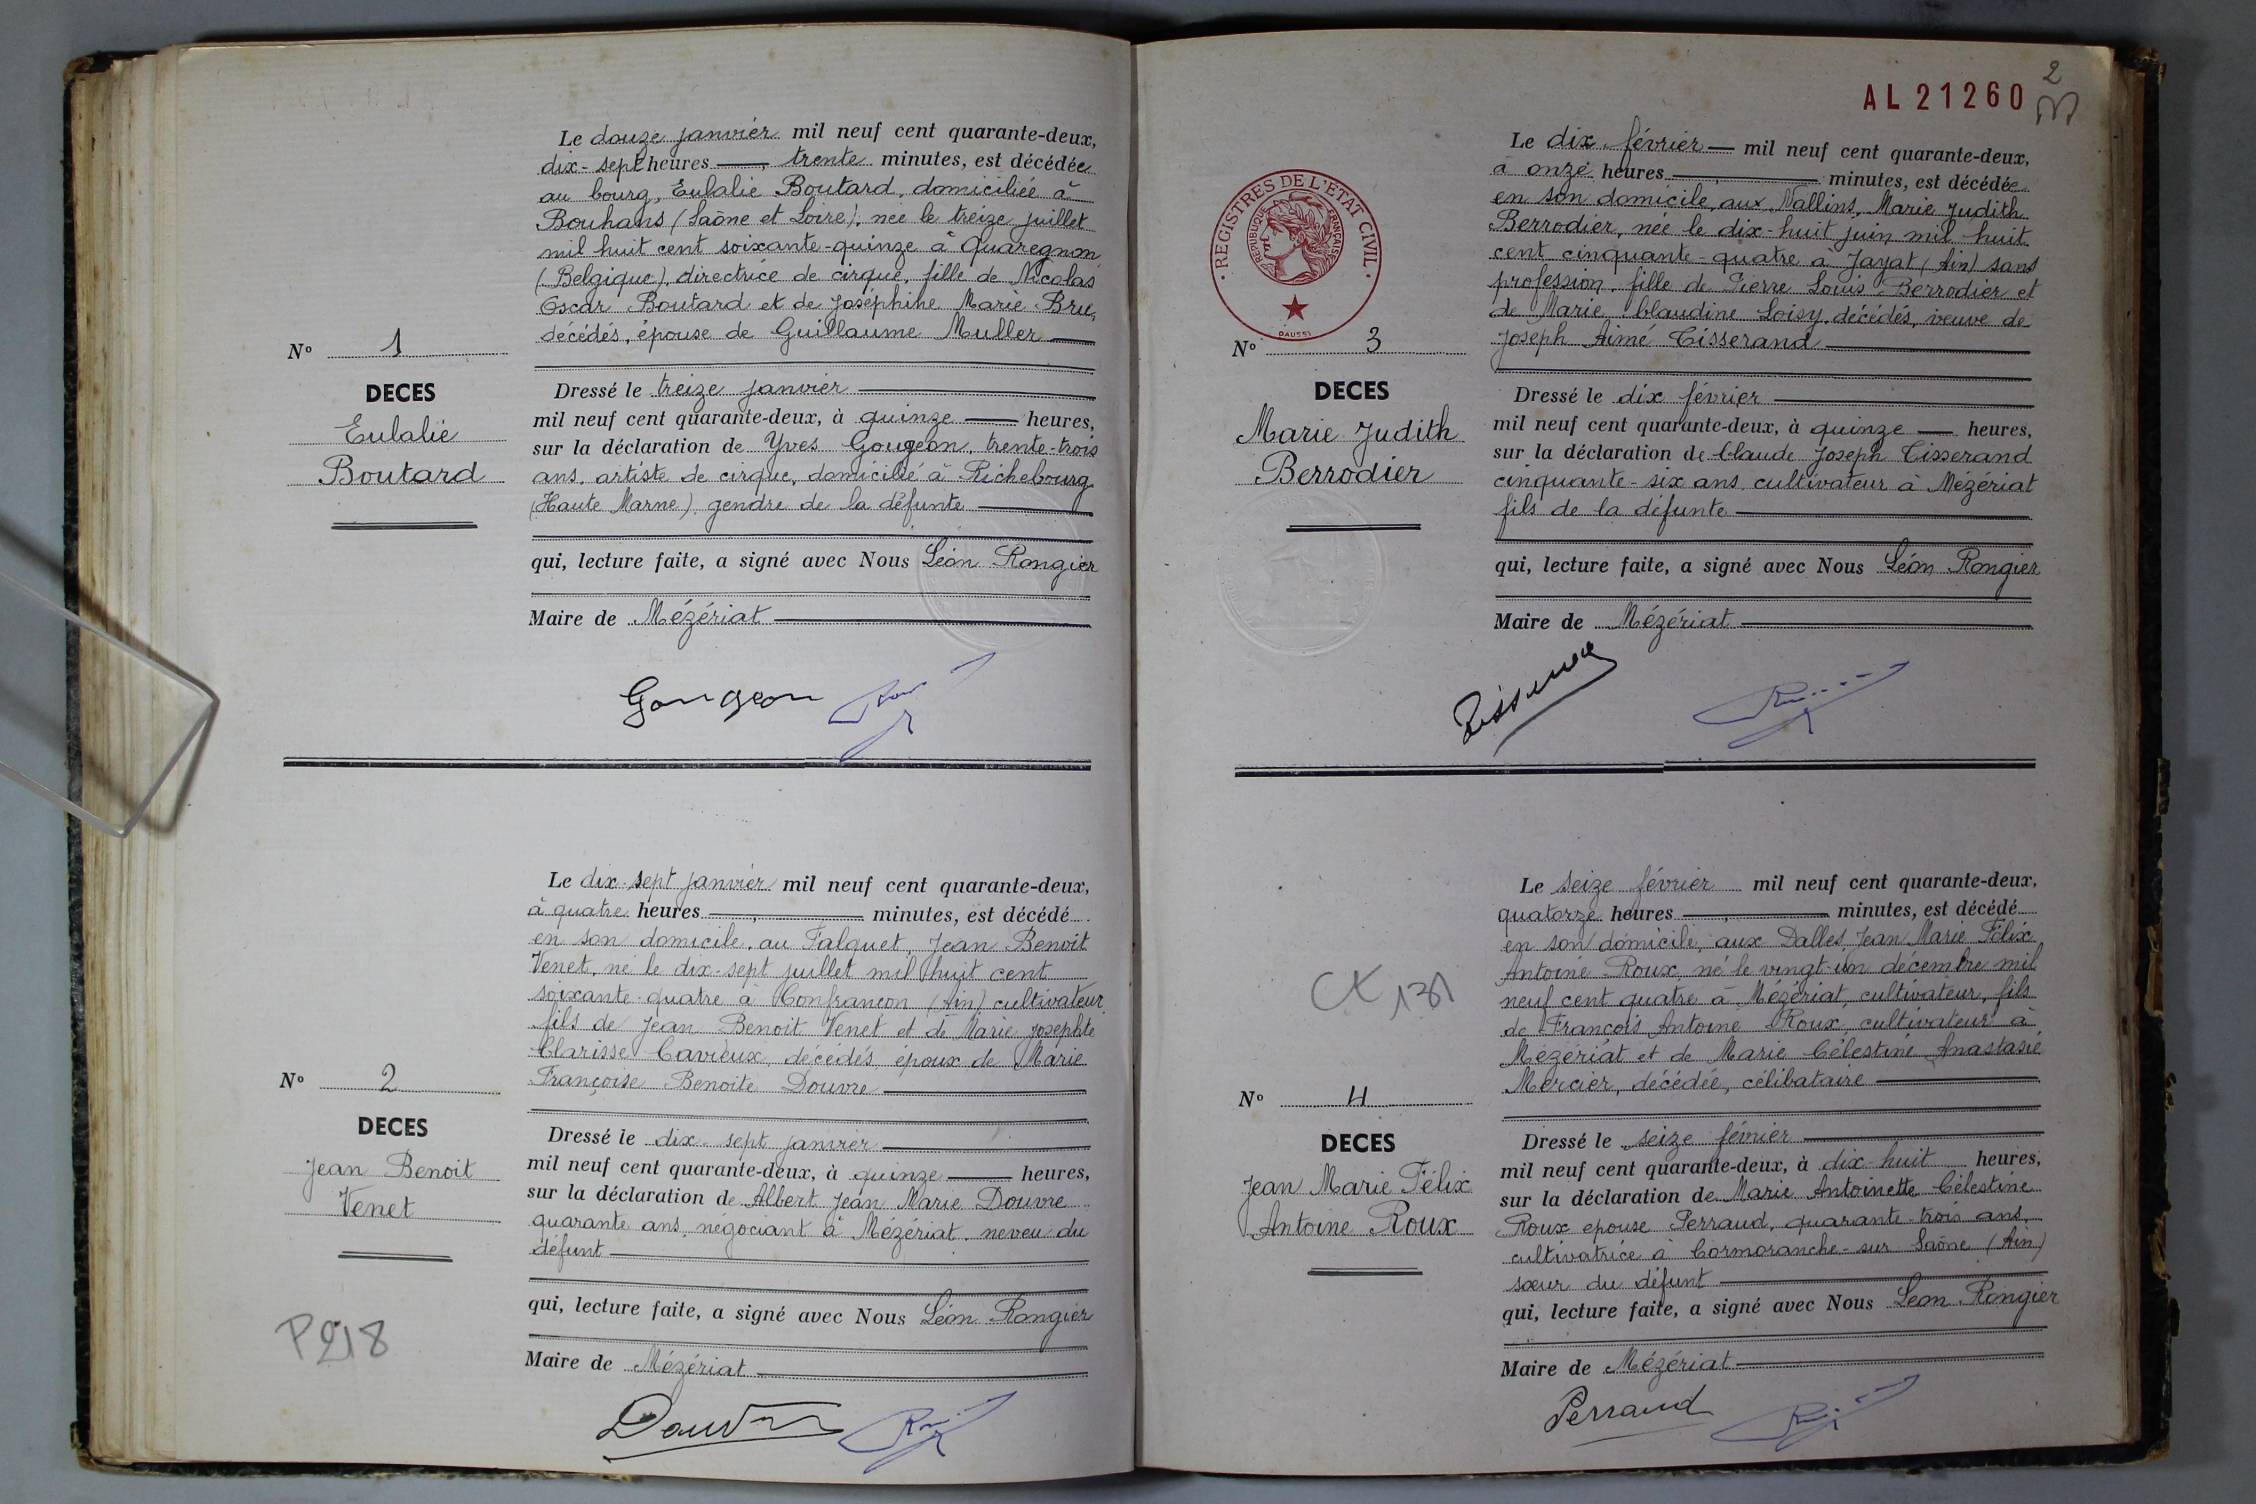 Le douze janvier mil neuf cent quarante-deux,
dix-sept heures trente minutes, est décédée
au bourg, Eulalie Boutard, domiciliée à
Bouhans (Saône et Loire), née le treize juillet
mil huit cent soixante-quinze à Quaregnon
(Belgique), directrice de cirque, fille de Nicolas
Oscar Boutard et de Joséphine Marie Bru,
décédés, épouse de Guillaume Muller
N° 1
DECES
Eulalie
Boutard
Dressé le treize janvier
mil neuf cent quarante-deux, à quinze heures,
sur la déclaration de Yves Gougeon, trente-trois
ans, artiste de cirque, domicilié à Richebourg
(Haute Marne), gendre de la défunte
qui, lecture faite, a signé avec Nous Léon Rongier
Maire de Mézériat
Gougeon
Le dix-sept janvier mil neuf cent quarante-deux,
à quatre heures minutes, est décédé
en son domicile, au Falquet, Jean Benoit
Venet, né le dix-sept juillet mil huit cent
soixante-quatre à Confrançon (Ain) cultivateur
fils de Jean Benoit Venet et de Marie Josephte
Clarisse Cavieux, décédés, époux de Marie
Françoise Benoite Douvre
N° 2
DECES
Jean Benoit
Venet
Dressé le dix-sept janvier
mil neuf cent quarante-deux, à quinze heures,
sur la déclaration de Albert Jean Marie Douvre
quarante ans, négociant à Mézériat, neveu du
défunt
qui, lecture faite, a signé avec Nous Léon Rongier
P218
Maire de Mézériat
Douvre
2
AL21260
Le dix février mil neuf cent quarante-deux,
à onze heures minutes, est décédée
en son domicile, aux Nallins, Marie Judith
Berrodier, née le dix-huit juin mil huit
cent cinquante-quatre à Jayat (Ain) sans
profession, fille de Pierre Louis Berrodier et
de Marie Claudine Loisy, décédés, veuve de
Joseph Aimé Tisserand
REGISTRES DE L'ETAT CIVIL
REPUBLIQUE FRANÇAISE
DAUSSI
N° 3
DECES
Marie Judith
Berrodier
Dressé le dix février
mil neuf cent quarante-deux, à quinze heures,
sur la déclaration de Claude Joseph Tisserand
cinquante-six ans, cultivateur à Mézériat
fils de la défunte
qui, lecture faite, a signé avec Nous Léon Rongier
Maire de Mézériat
Le seize février mil neuf cent quarante-deux,
quatorze heures minutes, est décédé
en son domicile, aux Dalles, Jean Marie Félix
Antoine Roux, né le vingt-un décembre mil
neuf cent quatre à Mézériat, cultivateur, fils
de François Antoine Roux, cultivateur à
Mézériat et de Marie Célestine Anastasie
Mercier, décédée, célibataire
N° 4
DECES
Jean Marie Félix
Antoine Roux
Dressé le seize février
mil neuf cent quarante-deux, à dix-huit heures,
sur la déclaration de Marie Antoinette Célestine
Roux épouse Perraud, quarante-trois ans,
cultivatrice à Cormoranche-sur Saône (Ain)
sœur du défunt
qui, lecture faite, a signé avec Nous Léon Rongier
Maire de Mézériat
Perraud